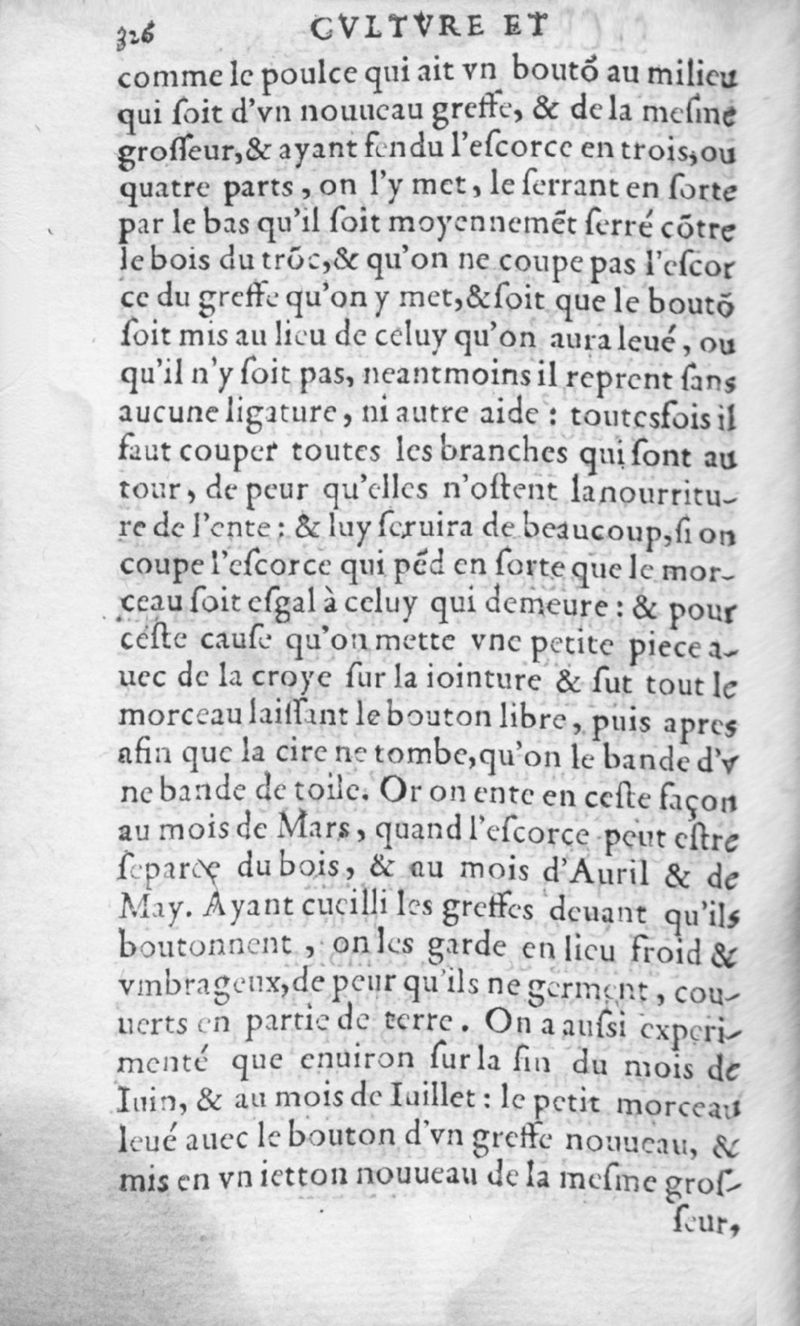 326 CVLTVRE ET
comme le poulce qui ait vn boutõ au milieu
qui ſoit d'vn nouueau greffe, & de la meſme
groſſeur,& ayant fendu l'eſcorce en trois,ou
quatre parts , on l'y met, le ſerrant en ſorte
par le bas qu'il ſoit moyennemẽt ſerré cõtre
le bois du trõc,& qu'on ne coupe pas l'eſcor
ce du greffe qu'on y met,&ſoit que le boutõ
ſoit mis au lieu de celuy qu'on aura leué, ou
qu'il n'y ſoit pas, neantmoins il reprent ſans
aucune ligature, ni autre aide : toutesfois il
faut couper toutes les branches qui ſont au
tour, de peur qu'elles n'oſtent la nourritu-
re de l'ente : & luy ſeruira de beaucoup,ſi on
coupe l'eſcorce qui pẽd en ſorte que le mor-
ceau ſoit eſgal à celuy qui demeure : & pour
ceſte cauſe qu'on mette vne petite piece a-
uec de la croye ſur la iointure & ſut tout le
morceau laiſſant le bouton libre, puis apres
afin que la cire ne tombe,qu'on le bande d'v
ne bande de toile. Or on ente en ceſte façon
au mois de Mars, quand l'eſcorce peut eſtre
ſeparee du bois, & au mois d'Auril & de
May. Ayant cueilli les greffes deuant qu'ils
boutonnent , on les garde en lieu froid &
vmbrageux,de peur qu'ils ne germent, cou-
uerts en partie de terre. On a auſsi experi-
menté que enuiron ſur la fin du mois de
Iuin, & au mois de Iuillet : le petit morceau
leué auec le bouton d'vn greffe nouueau, &
mis en vn ietton nouueau de la meſme groſ-
ſeur,